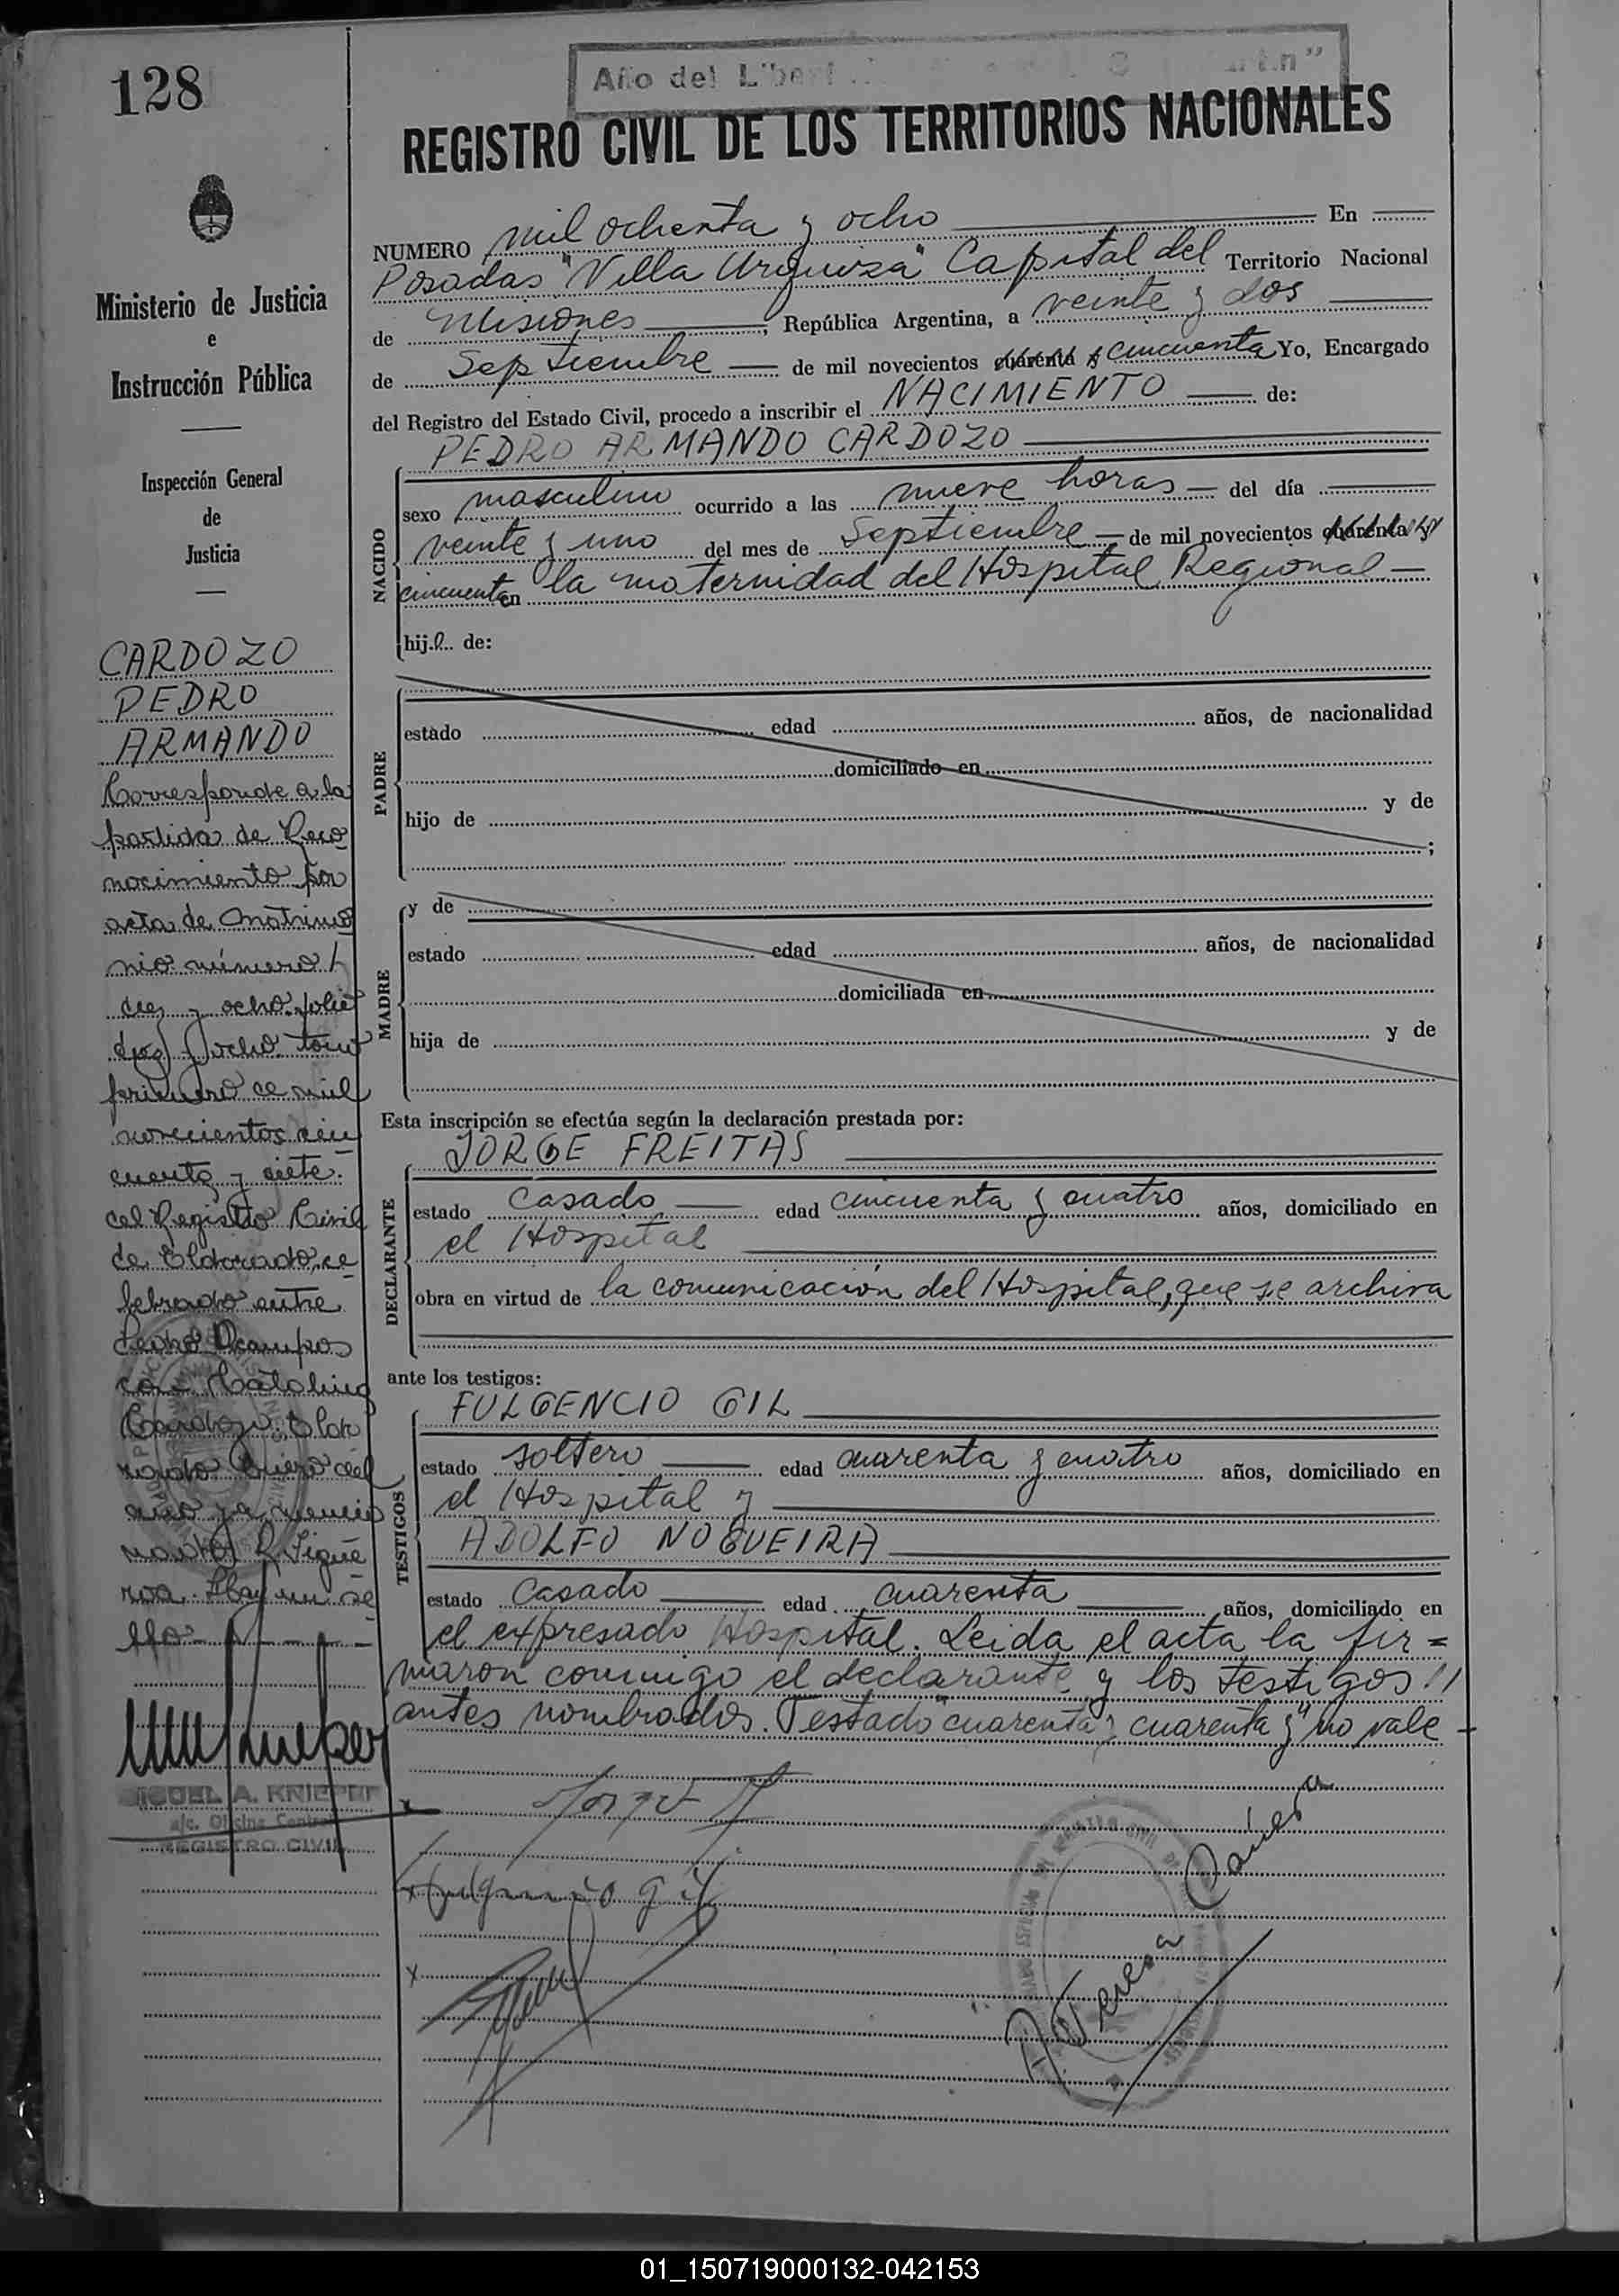 128
Año del Libert
REGISTRO CIVIL DE LOS TERRITORIOS NACIONALES
Ministerio de Justicia
e
Instrucción Pública
Inspección General
de
Justicia
CARDOZO
PEDRO
ARMANDO
Corresponde a la
partida de Reco
nocimiento por
acta de matrimo
nio número
diez y ocho folio
diez y ocho tomo
primero de mil
novecientos cin
cuenta y siete.
del Registro Civil
de Eldorado, ce
lebrado entre
Pedro Ocampos
con Catalina
Cardozo. Eldo
rado Enero del
año ya mencio
nado. Figue
roa. Hay un se
llo
MIGUEL A. KNIEPER
a/c. Oficina Central
REGISTRO CIVIL
NUMERO mil ochenta y ocho En
Posadas "Villa Urquiza" Capital del Territorio Nacional
de Misiones, República Argentina, a veinte y dos
de Septiembre de mil novecientos cuarenta y cincuenta Yo, Encargado
del Registro del Estado Civil, procedo a inscribir el NACIMIENTO de:
PEDRO ARMANDO CARDOZO
NACIDO
sexo masculino ocurrido a las nueve horas del día
veinte y uno del mes de Septiembre de mil novecientos cuarenta y
cincuenta en la maternidad del Hospital Regional
hijo de:
PADRE
estado edad años, de nacionalidad
domiciliado en
hijo de y de
;
MADRE
y de
estado edad años, de nacionalidad
domiciliada en
hija de y de
Esta inscripción se efectúa según la declaración prestada por:
DECLARANTE
JORGE FREITAS
estado casado edad cincuenta y cuatro años, domiciliado en
el Hospital
obra en virtud de la comunicación del Hospital, que se archiva
ante los testigos:
TESTIGOS
FULGENCIO GIL
estado soltero edad cuarenta y cuatro años, domiciliado en
el Hospital y
ADOLFO NOGUEIRA
estado casado edad cuarenta años, domiciliado en
el expresado Hospital. Leida el acta la fir=
maron conmigo el declarante y los testigos
antes nombrados. Testado "cuarenta y cuarenta y" no vale
Fulgencio Gil
Teresa
01_150719000132-042153